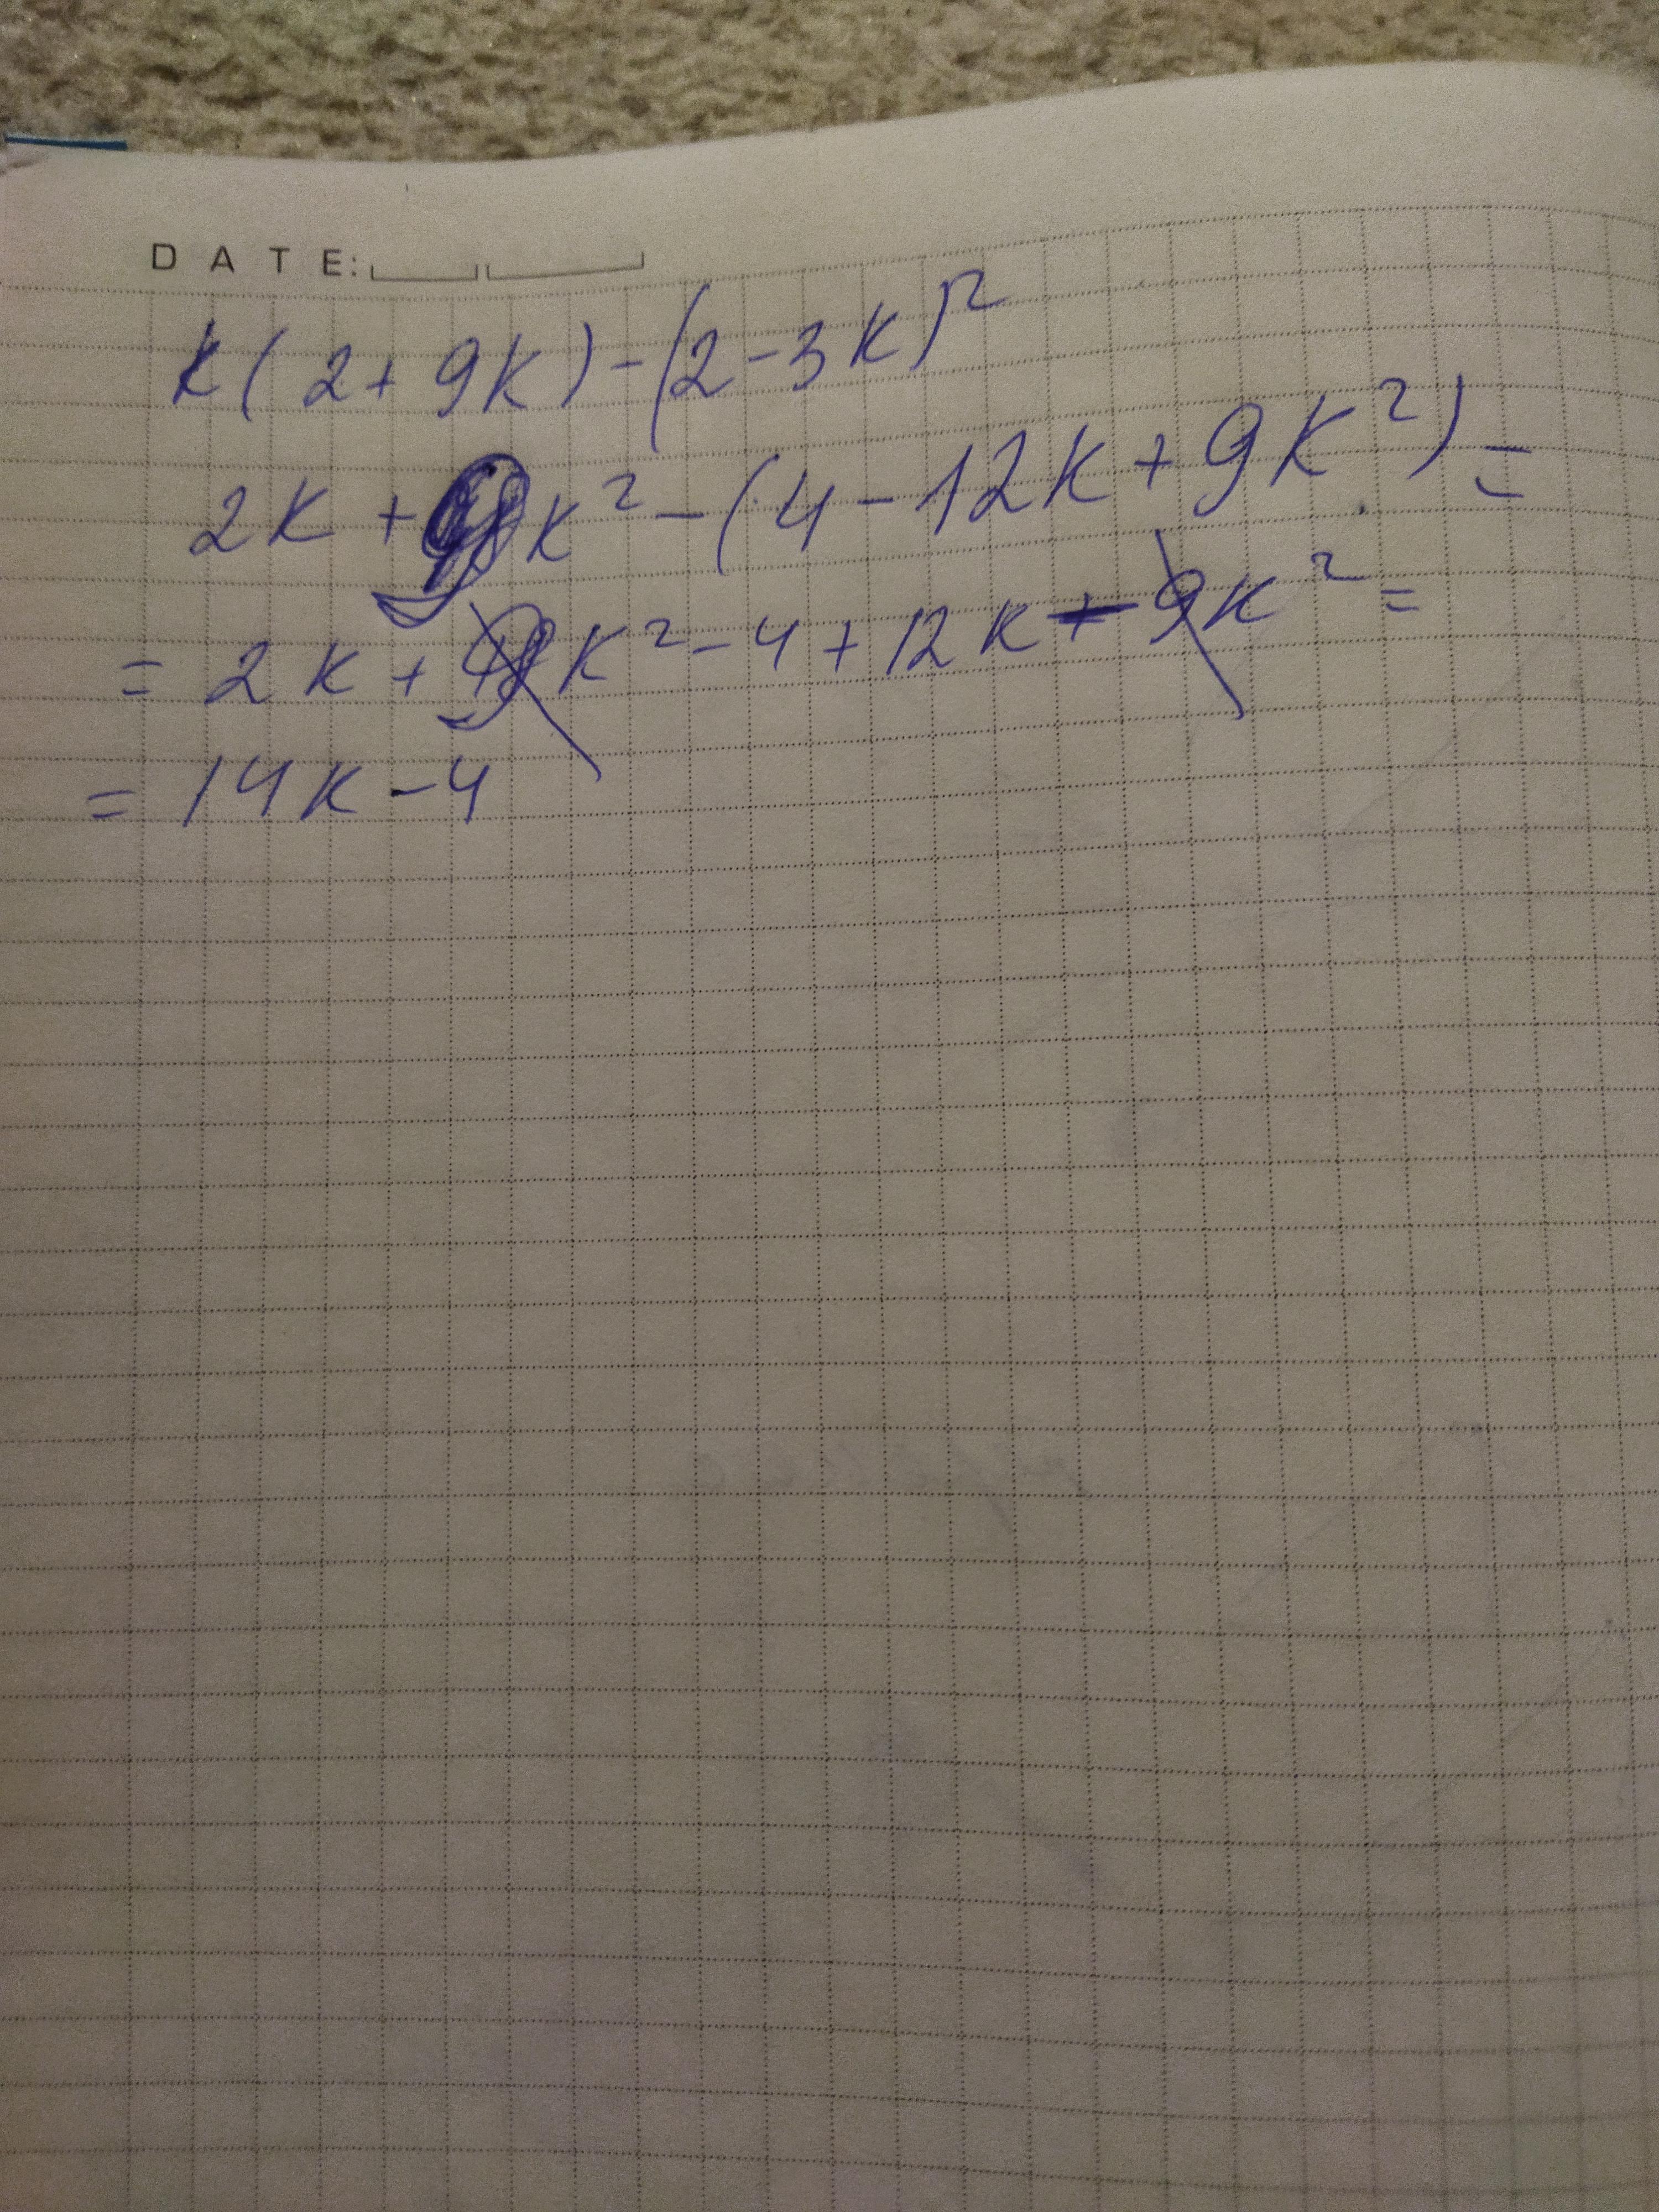 DATE:
k(2+9k)-(2-3k)²
2k+9k²-(4-12k+9k²)=
=2k+9k²-4+12k-9k²=
=14k-4